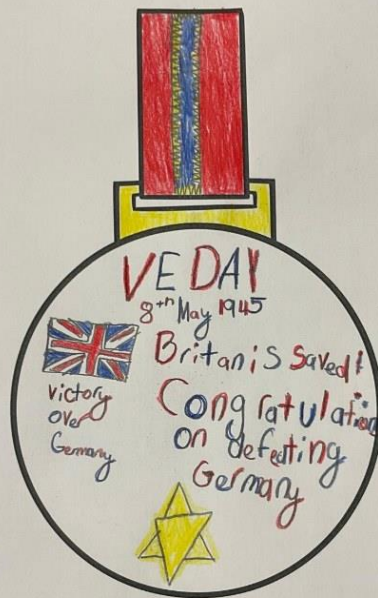 VE DAY
8th May 1945
Britan is saved!
Victory
over
Germany
Congratulation
on defeating
Germany